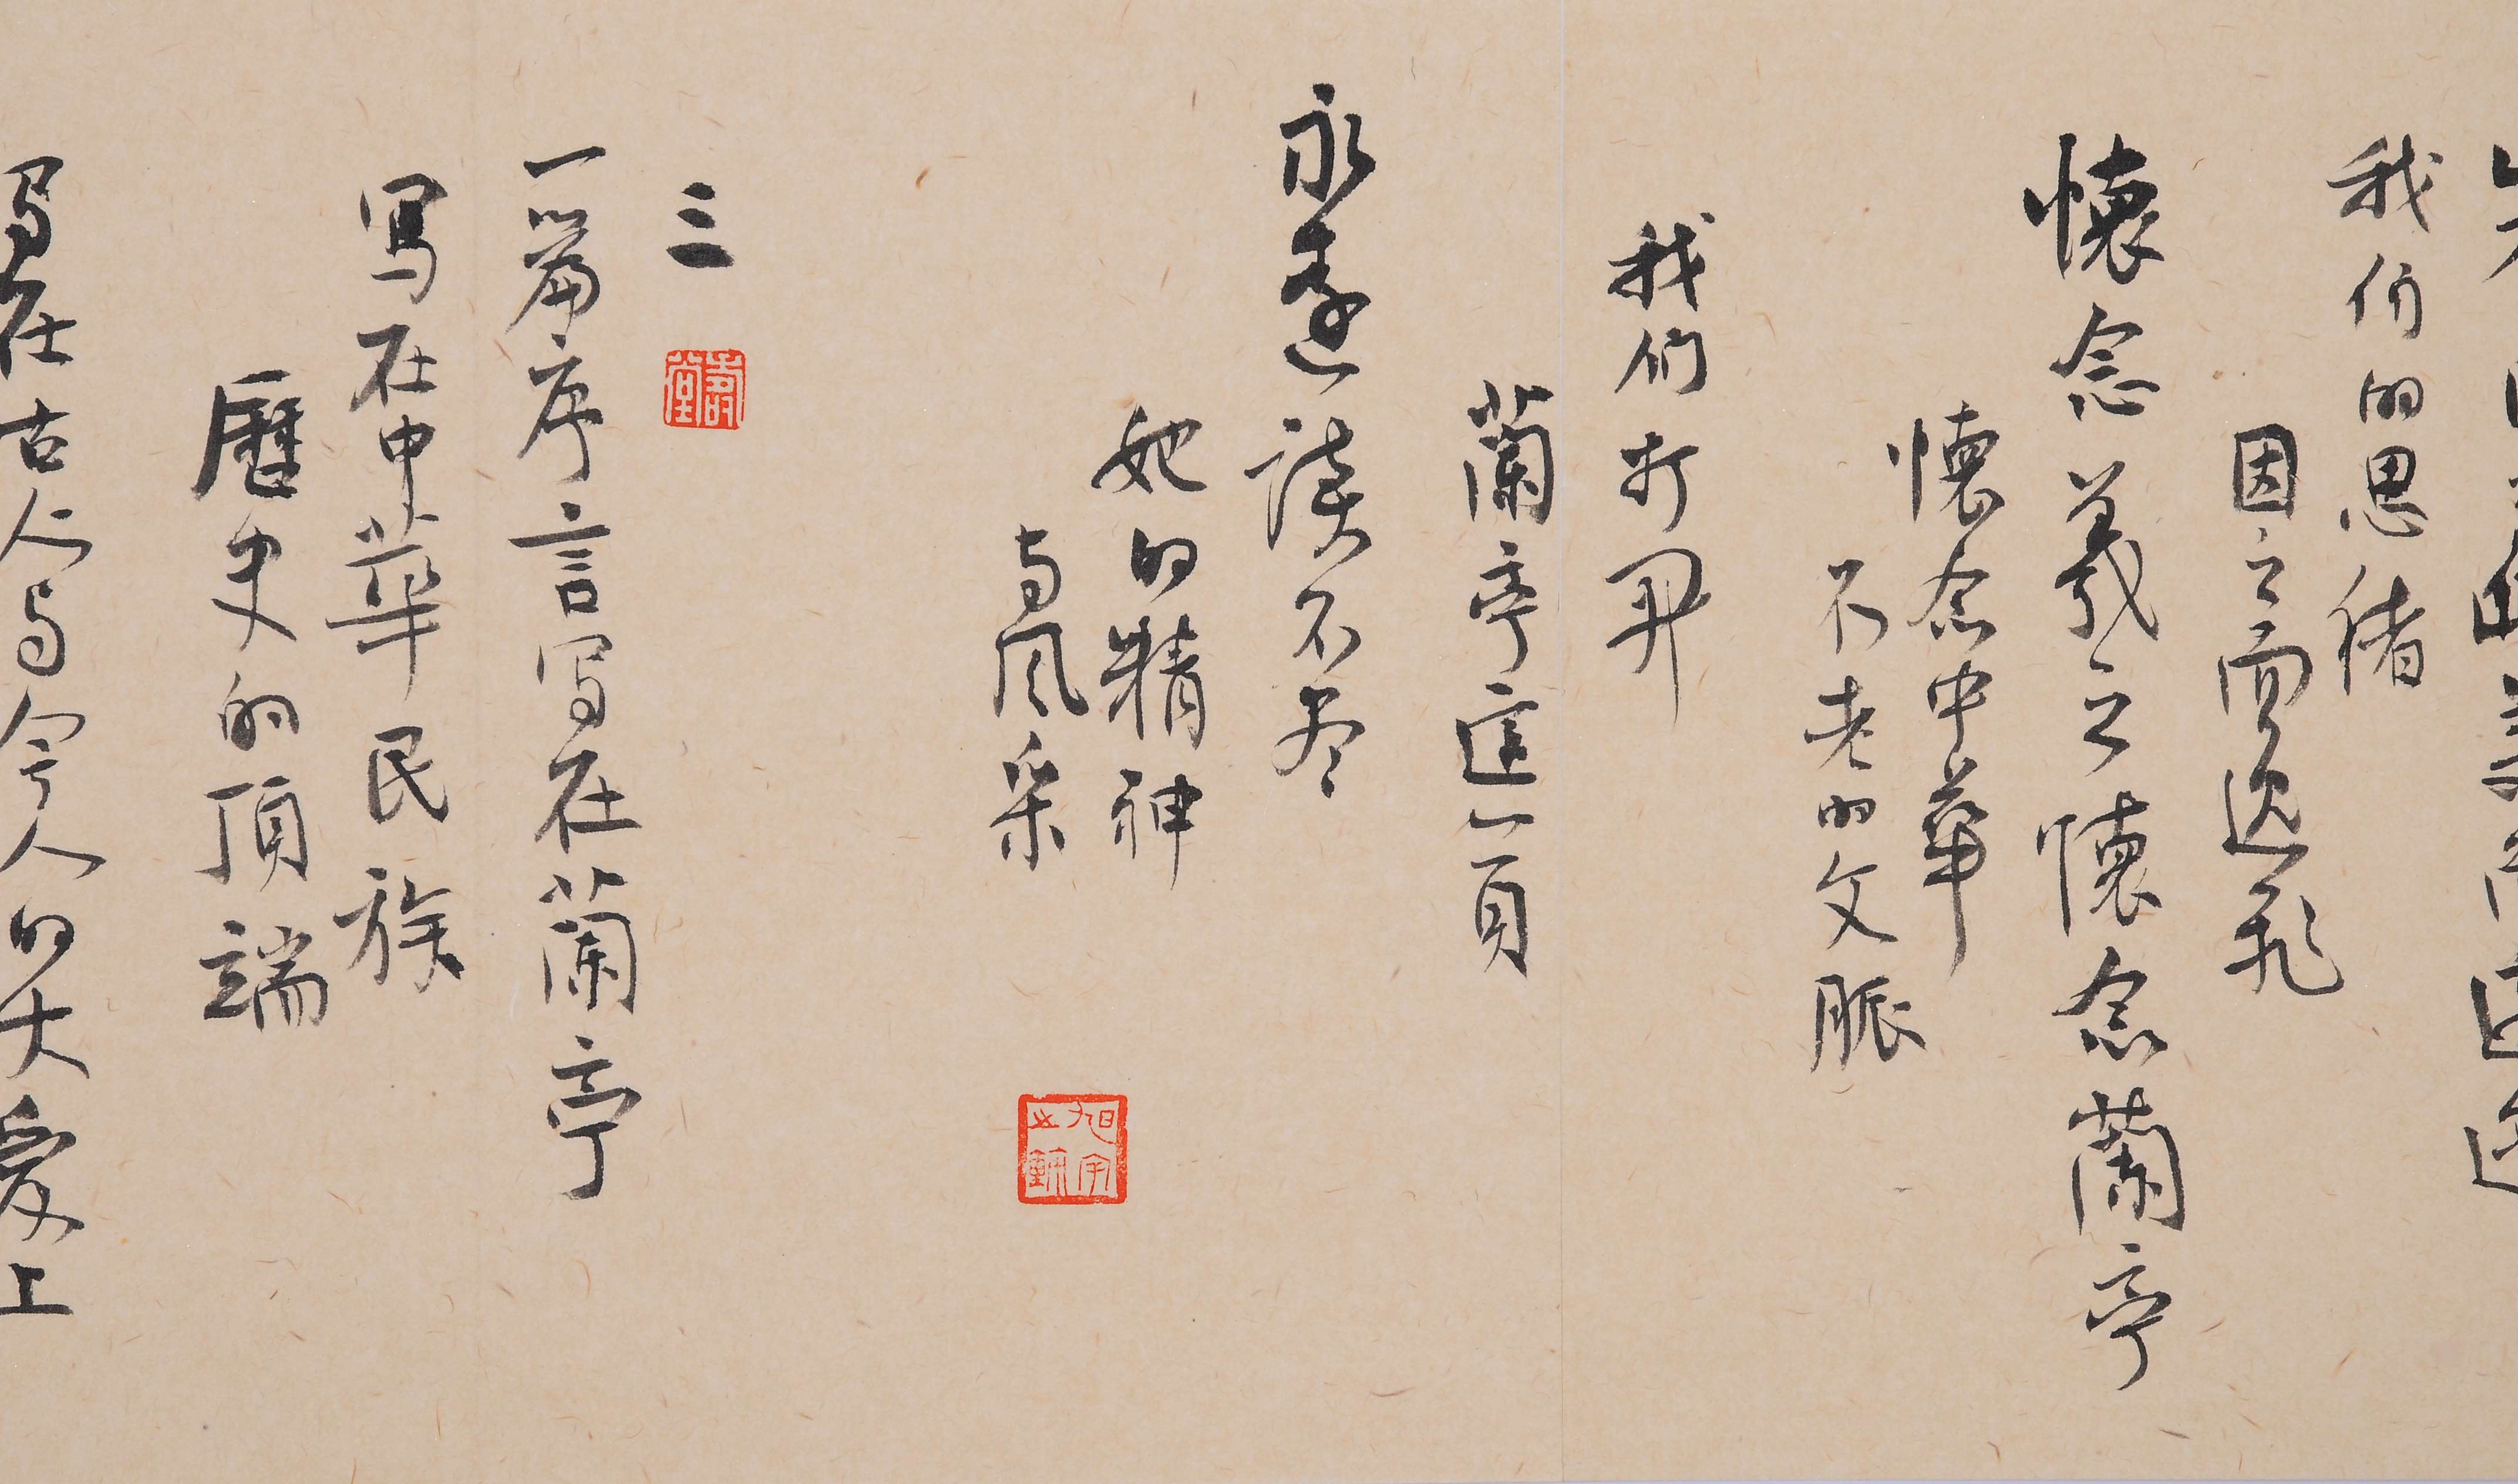 我们的思绪
因之而逸飛
懷念羲之懷念蘭亭
懷念中華
不老的文脈
我们打開
蘭亭這一頁
永遠讀不尽
她的精神
与风采
三
一篇序言写在蘭亭
写在中華民族
歷史的頂端
写在古人与今人的大爱上